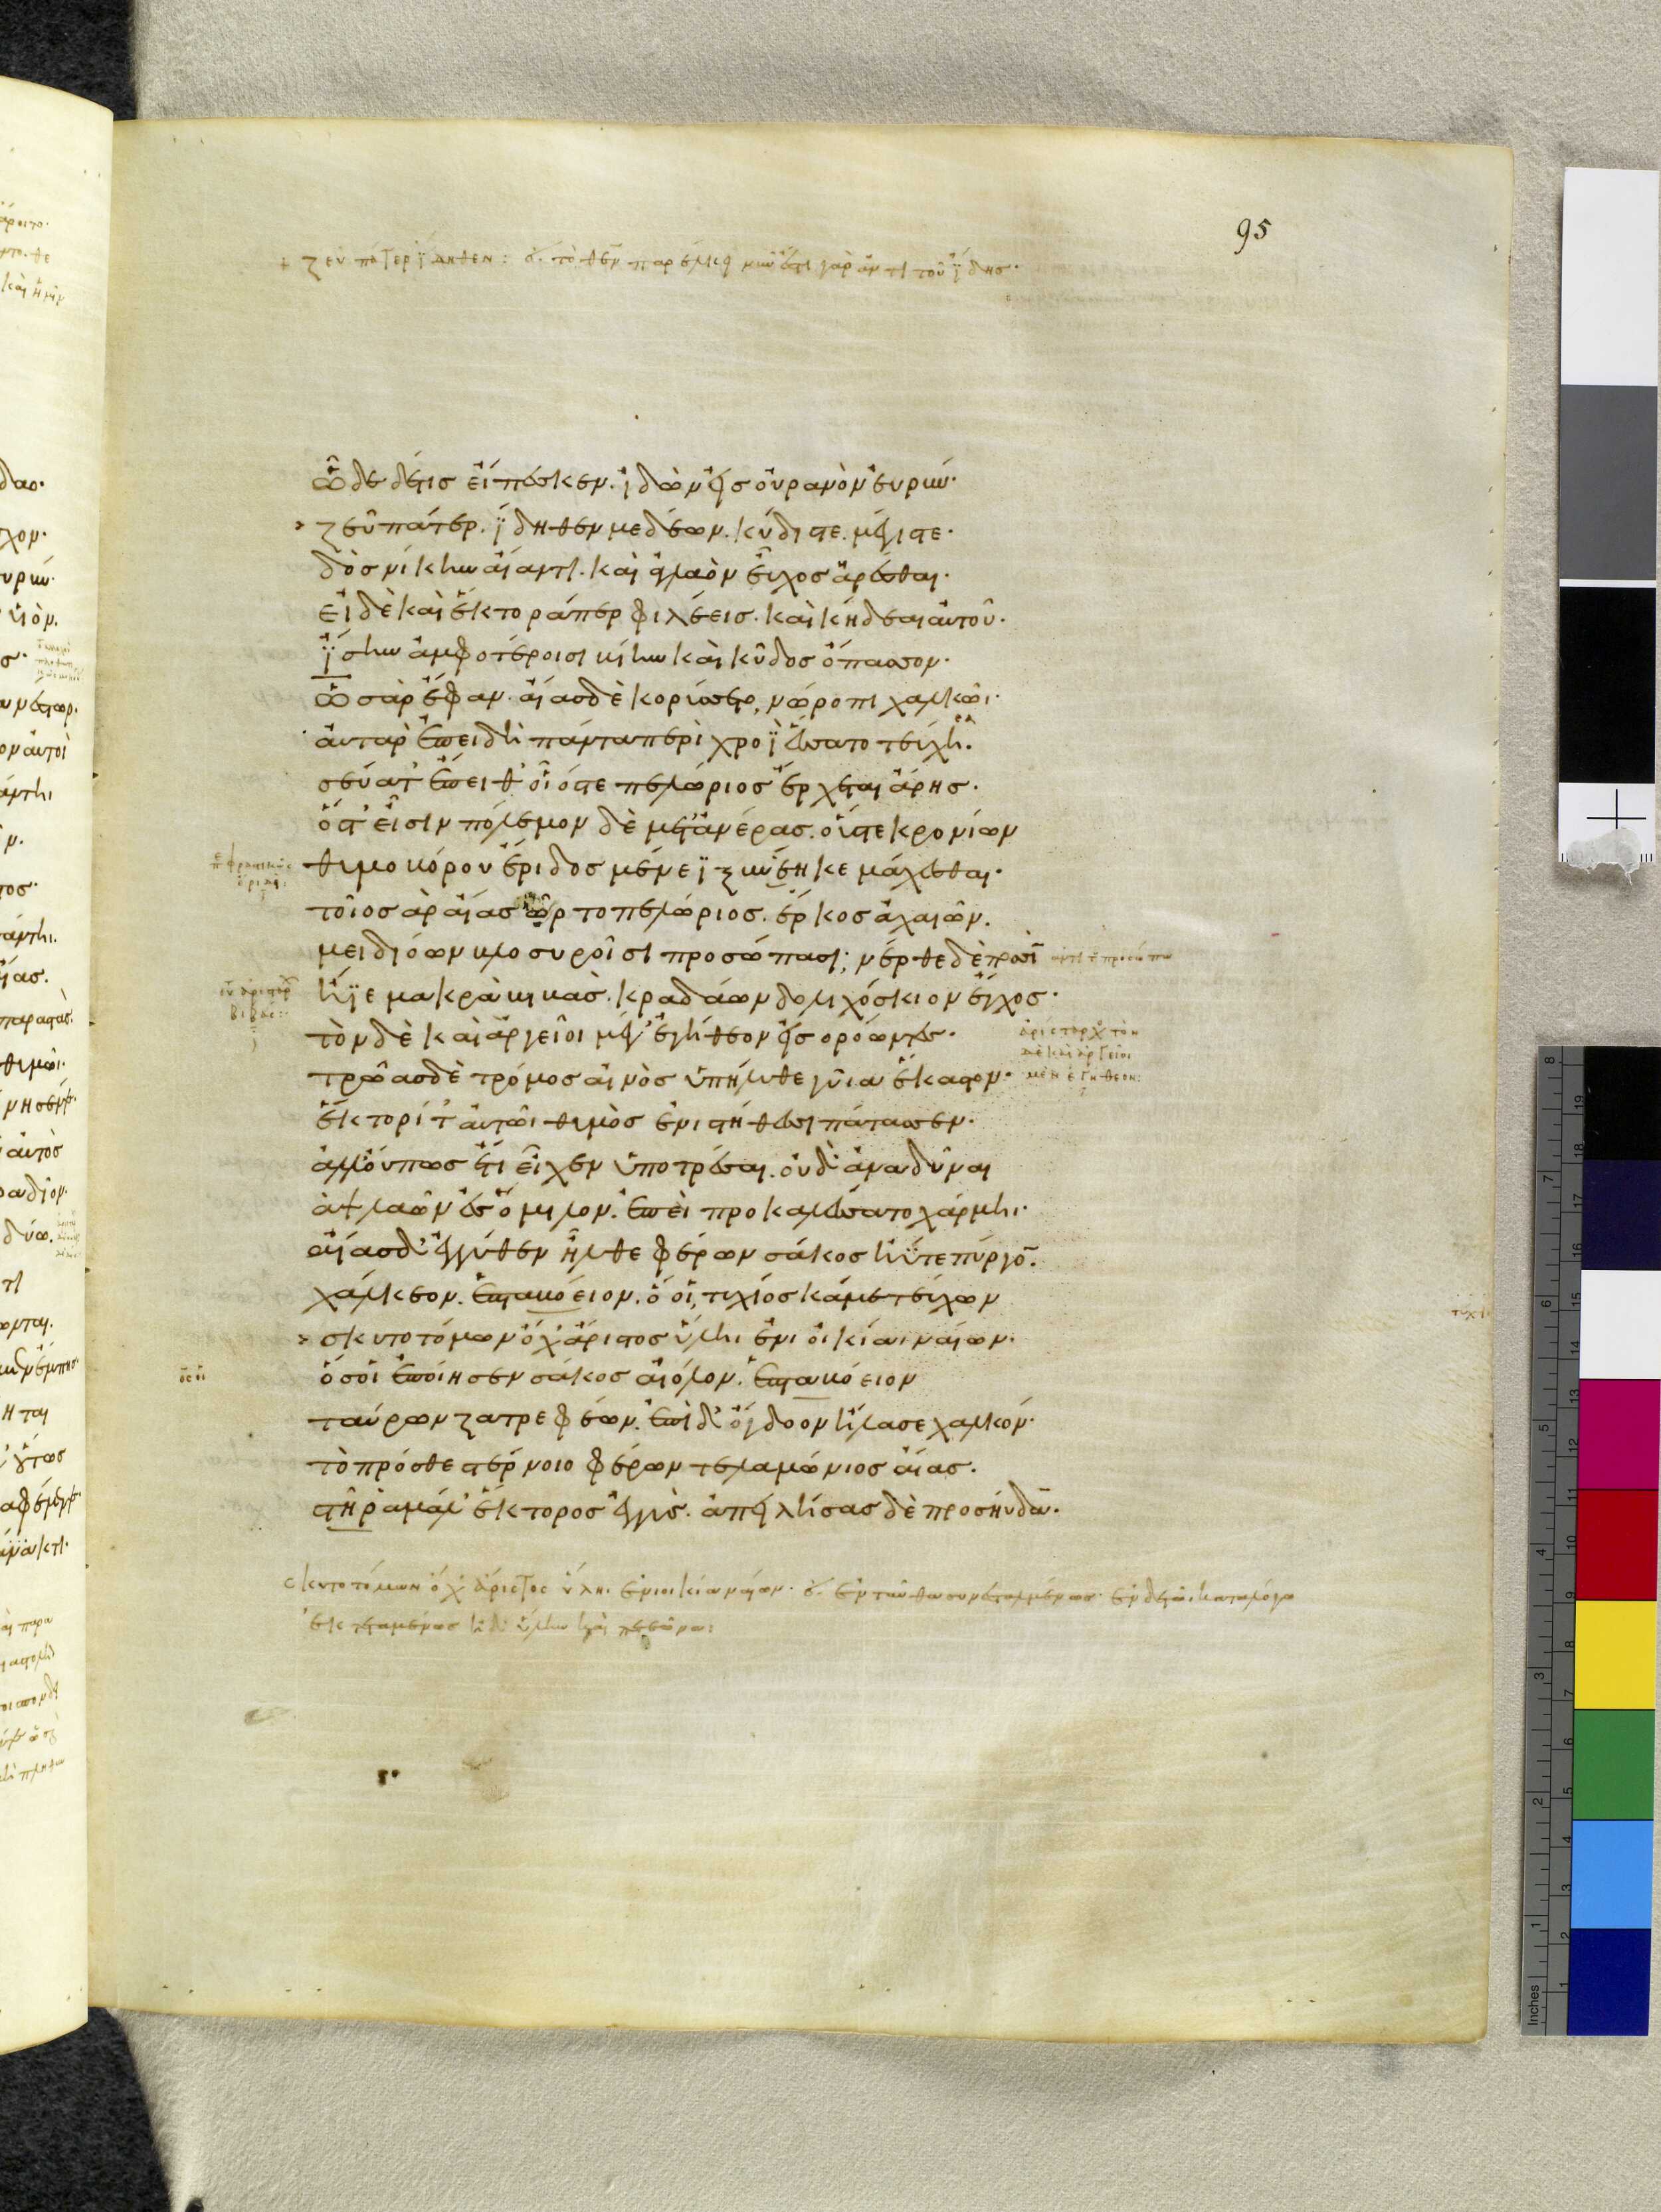 95
ζεῦ πάτερ ἴδηθεν: τὸ θεν παρέλκει νῦν ἔστι γὰρ ἀντὶ τοῦ ἴδης·
ὧδε δέ τις εἴπεσκεν. ἰδὼν εἰς οὐρανὸν εὐρύν·
ζεῦ πάτερ. ἴδηθεν μεδέων. κύδιστε. μέγιστε·
δὸς νίκην αἴαντι. καὶ ἀγλαὸν εὖχος ἀρέσθαι·
εἰ δὲ καὶ ἕκτορά περ φιλέεις. καὶ κήδεαι αὐτοῦ·
ἴσην ἀμφοτέροισι βίην καὶ κῦδος ὄπασσον·
ὣς ἄρ ἔφαν. αἴας δὲ κορύσσετο, νώροπι χαλκῶι·
αὐτὰρ ἐπειδὴ πάντα περὶ χροῒ ἕσσατο τεύχη.
σεύατ' ἔπειθ' οἷός τε πελώριος ἔρχεται ἄρης·
ὅς τ' εἶσιν πόλεμον δὲ μετ' ἀνέρας. οὕς τε κρονίων
θυμοβόρου ἔριδος μένεϊ ξυνέηκε μάχεσθαι·
τοῖος ἄρ αἴας ὦρτο πελώριος. ἕρκος ἀχαιῶν.
μειδιόων βλοσυροῖσι προσώπασι; νέρθε δὲ ποσσὶ
ἤϊε μακρὰ βιβάς. κραδάων δολιχόσκιον ἔγχος·
τὸν δὲ καὶ ἀργεῖοι μέγ' ἐγήθεον εἰσορόωντες·
ἀρίσταρχ τὸν
δὲ καὶ ἀργεῖοι
μὲν ἐγήθεον:
τρῶας δὲ τρόμος αἰνὸς ὑπήλυθε γυῖα ἕκαστον·
ἕκτορί τ' αὐτῶι θυμὸς ἐνὶ στήθεσσι πάτασσεν·
ἀλλ' οὔπως ἔτι εἶχεν ὑποτρέσαι. οὐδ' ἀναδῦναι
ἂψ λαῶν ἐς ὅμιλον. ἐπεὶ προκαλέσσατο χάρμηι·
αἴας δ' ἐγγύθεν ἦλθε φέρων σάκος ἠΰτε πύργον.
χάλκεον. ἑπταβόειον. ὅ οἱ, τυχίος κάμε τεύχων
σκυτοτόμων ὄχ' ἄριστος ὕληι ἔνι οἰκία ναίων·
ὅς οἱ
ὅς οἱ ἐποίησεν σάκος αἰόλον. ἑπταβόειον
ταύρων ζατρεφέων. ἐπὶ δ' ὄγδοον ἤλασε χαλκόν·
τὸ πρόσθε στέρνοιο φέρων τελαμώνιος αἴας.
στῆ ῥα μάλ' ἕκτορος ἐγγύς. ἀπειλήσας δὲ προσηύδα·
σκυτοτόμων ὄχ' ἄριστος ὕληι ἔνι οἰκία ναίων· ἐνταῦθα συνεσταλμένως· ἐν δὲ τῶι καταλόγω
ἐκτεταμένως